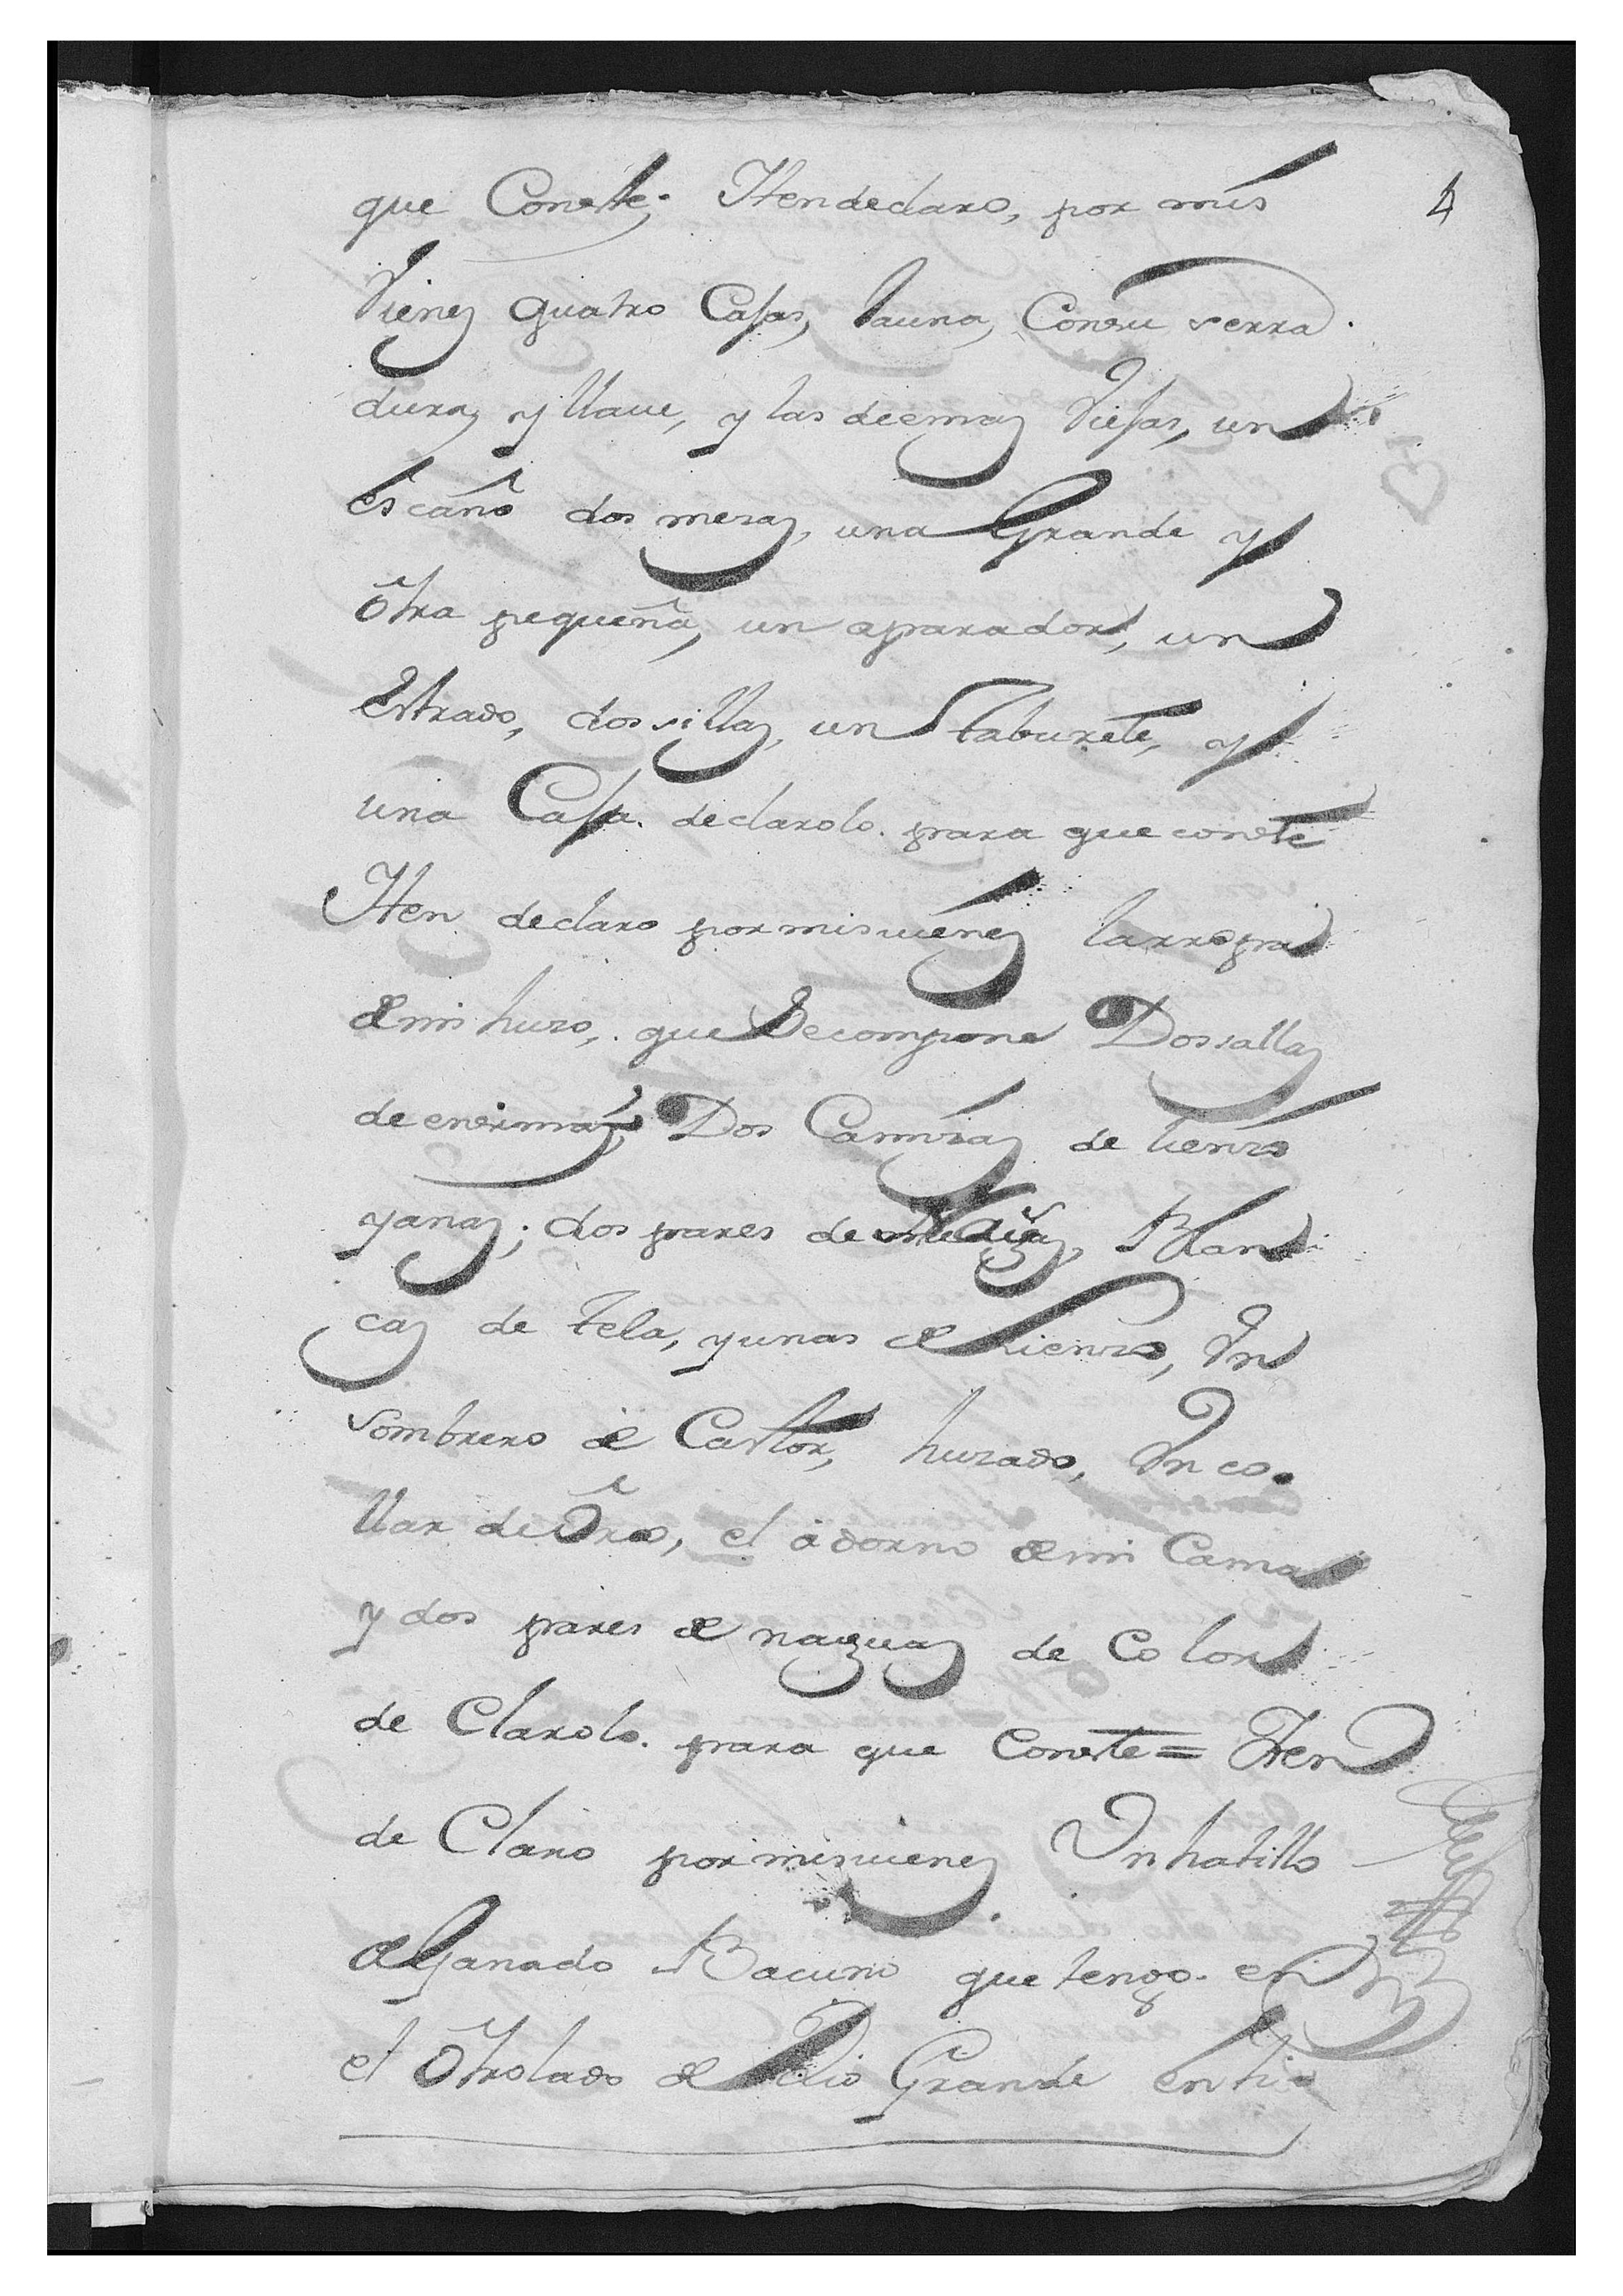 que Conste; Yten declaro, por mis
4
Vienes quatro Casas, la una, Con su serra
dura, y llaue, y las deemas Viejas, un
escaño dos mesas, una Grande y
ôtra pequeña, un aparador, un
estrado, dos sillas, un taburete, y
una Caja. declarolo. para que conste
Yten declaro por mis vienes la rropa
de mi huzo, que Se compone Dos sallas
de ensimas, Dos Camizas de lienzo
yanas; dos pares de medias, Blan
cas de tela, y unas de Lienzo, Vn
sombrero de Castor, huzado, Vn co
llar de Oro, el adorno de mi Cama
y dos pares de naguas de Color
de Clarolo. para que Conste = Yten
de Claro por mis vienes Vn hatillo
de Ganado Bacuno que tengo. en
el Otro lado de Rio Grande en ti